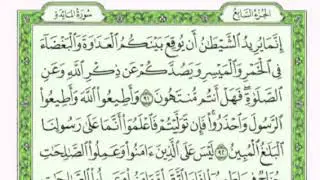 الجزء السابع سورة المائدة
إِنَّمَا يُرِيدُ الشَّيْطَٰنُ أَن يُوقِعَ بَيْنَكُمُ الْعَدَٰوَةَ وَالْبَغْضَآءَ
فِى الْخَمْرِ وَالْمَيْسِرِ وَيَصُدَّكُمْ عَن ذِكْرِ اللَّهِ وَعَنِ
الصَّلَوٰةِ ۖ فَهَلْ أَنتُم مُّنتَهُونَ ٩١ وَأَطِيعُوا اللَّهَ وَأَطِيعُوا
الرَّسُولَ وَاحْذَرُوا ۚ فَإِن تَوَلَّيْتُمْ فَاعْلَمُوٓا أَنَّمَا عَلَىٰ رَسُولِنَا
الْبَلَٰغُ الْمُبِينُ ٩٢ لَيْسَ عَلَى الَّذِينَ ءَامَنُوا وَعَمِلُوا الصَّٰلِحَٰتِ